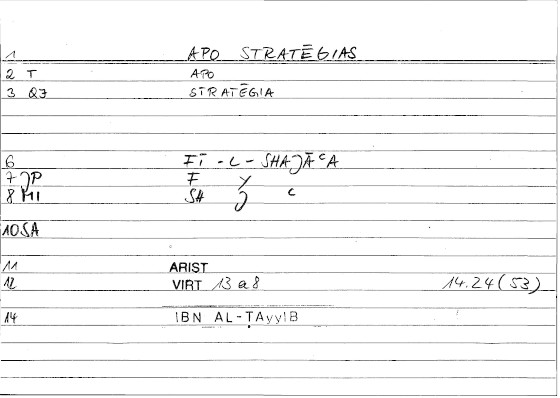 1 APO STRATĒGIAS
2 T APO
3 QJ STRATĒGIA
6 FĪ-L-SHAJĀʿA
7 JP F Y
8 MI SH J ʿ
10 SA
11 ARIST
12 VIRT 13 a 8 14.24 (53)
14 IBN AL-ṬAyyIB